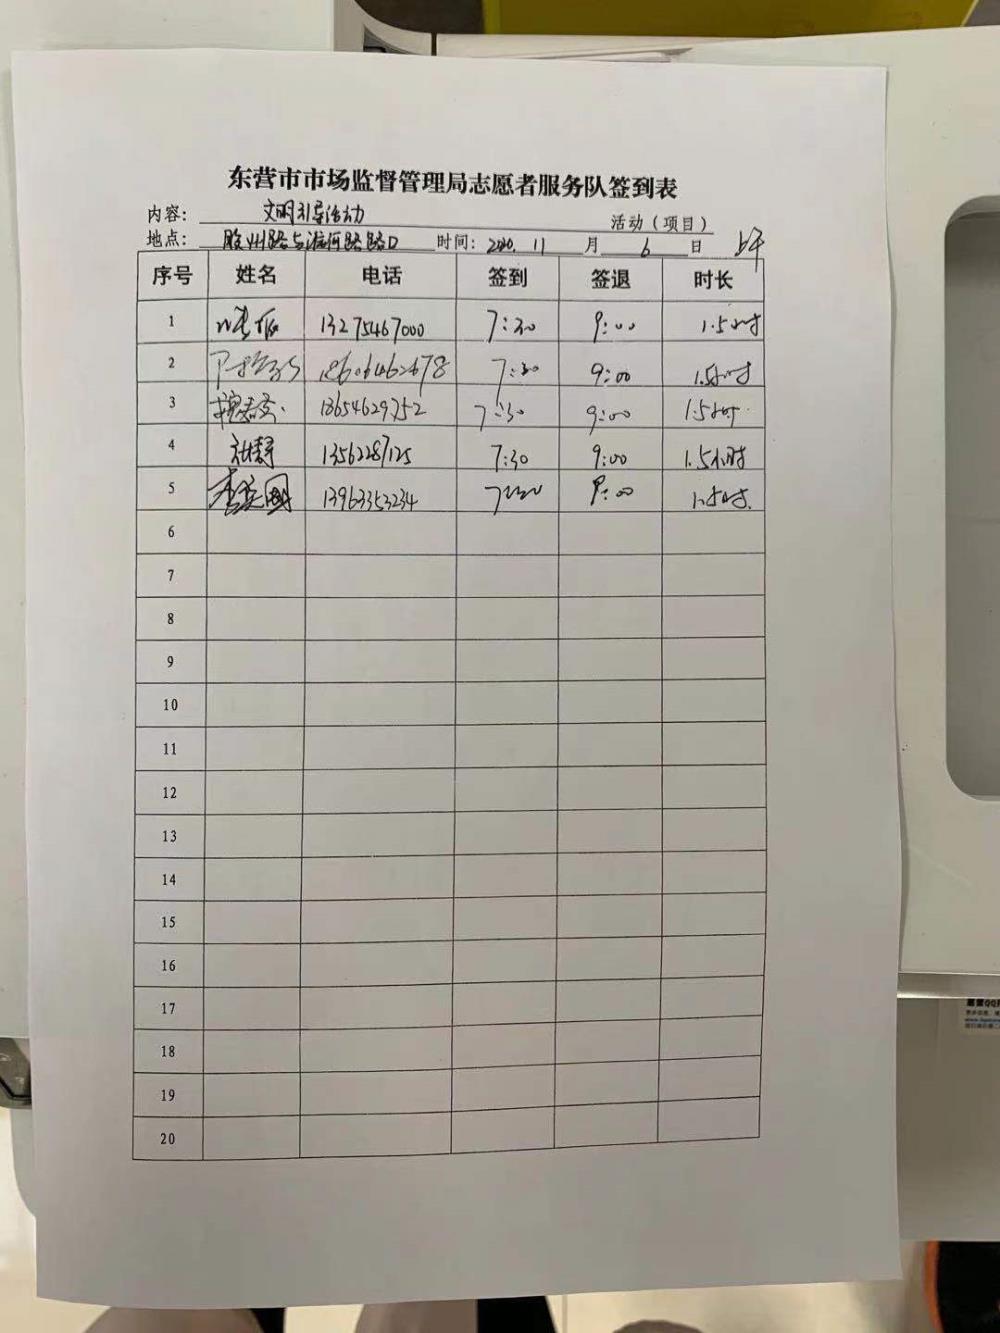 东营市市场监督管理局志愿者服务队签到表
内容: 文明引导活动 活动（项目）
地点: 胶州路与淮河路路口 时间: 2020.11 月 6 日 上午
序号 姓名 电话 签到 签退 时长
1 13275467000 7:30 9:00 1.5小时
2 7:30 9:00 1.5小时
3 18654629752 7:30 9:00 1.5小时
4 13562287125 7:30 9:00 1.5小时
5 13963353234 7:30 9:00 1.5小时
6
7
8
9
10
11
12
13
14
15
16
17
18
19
20